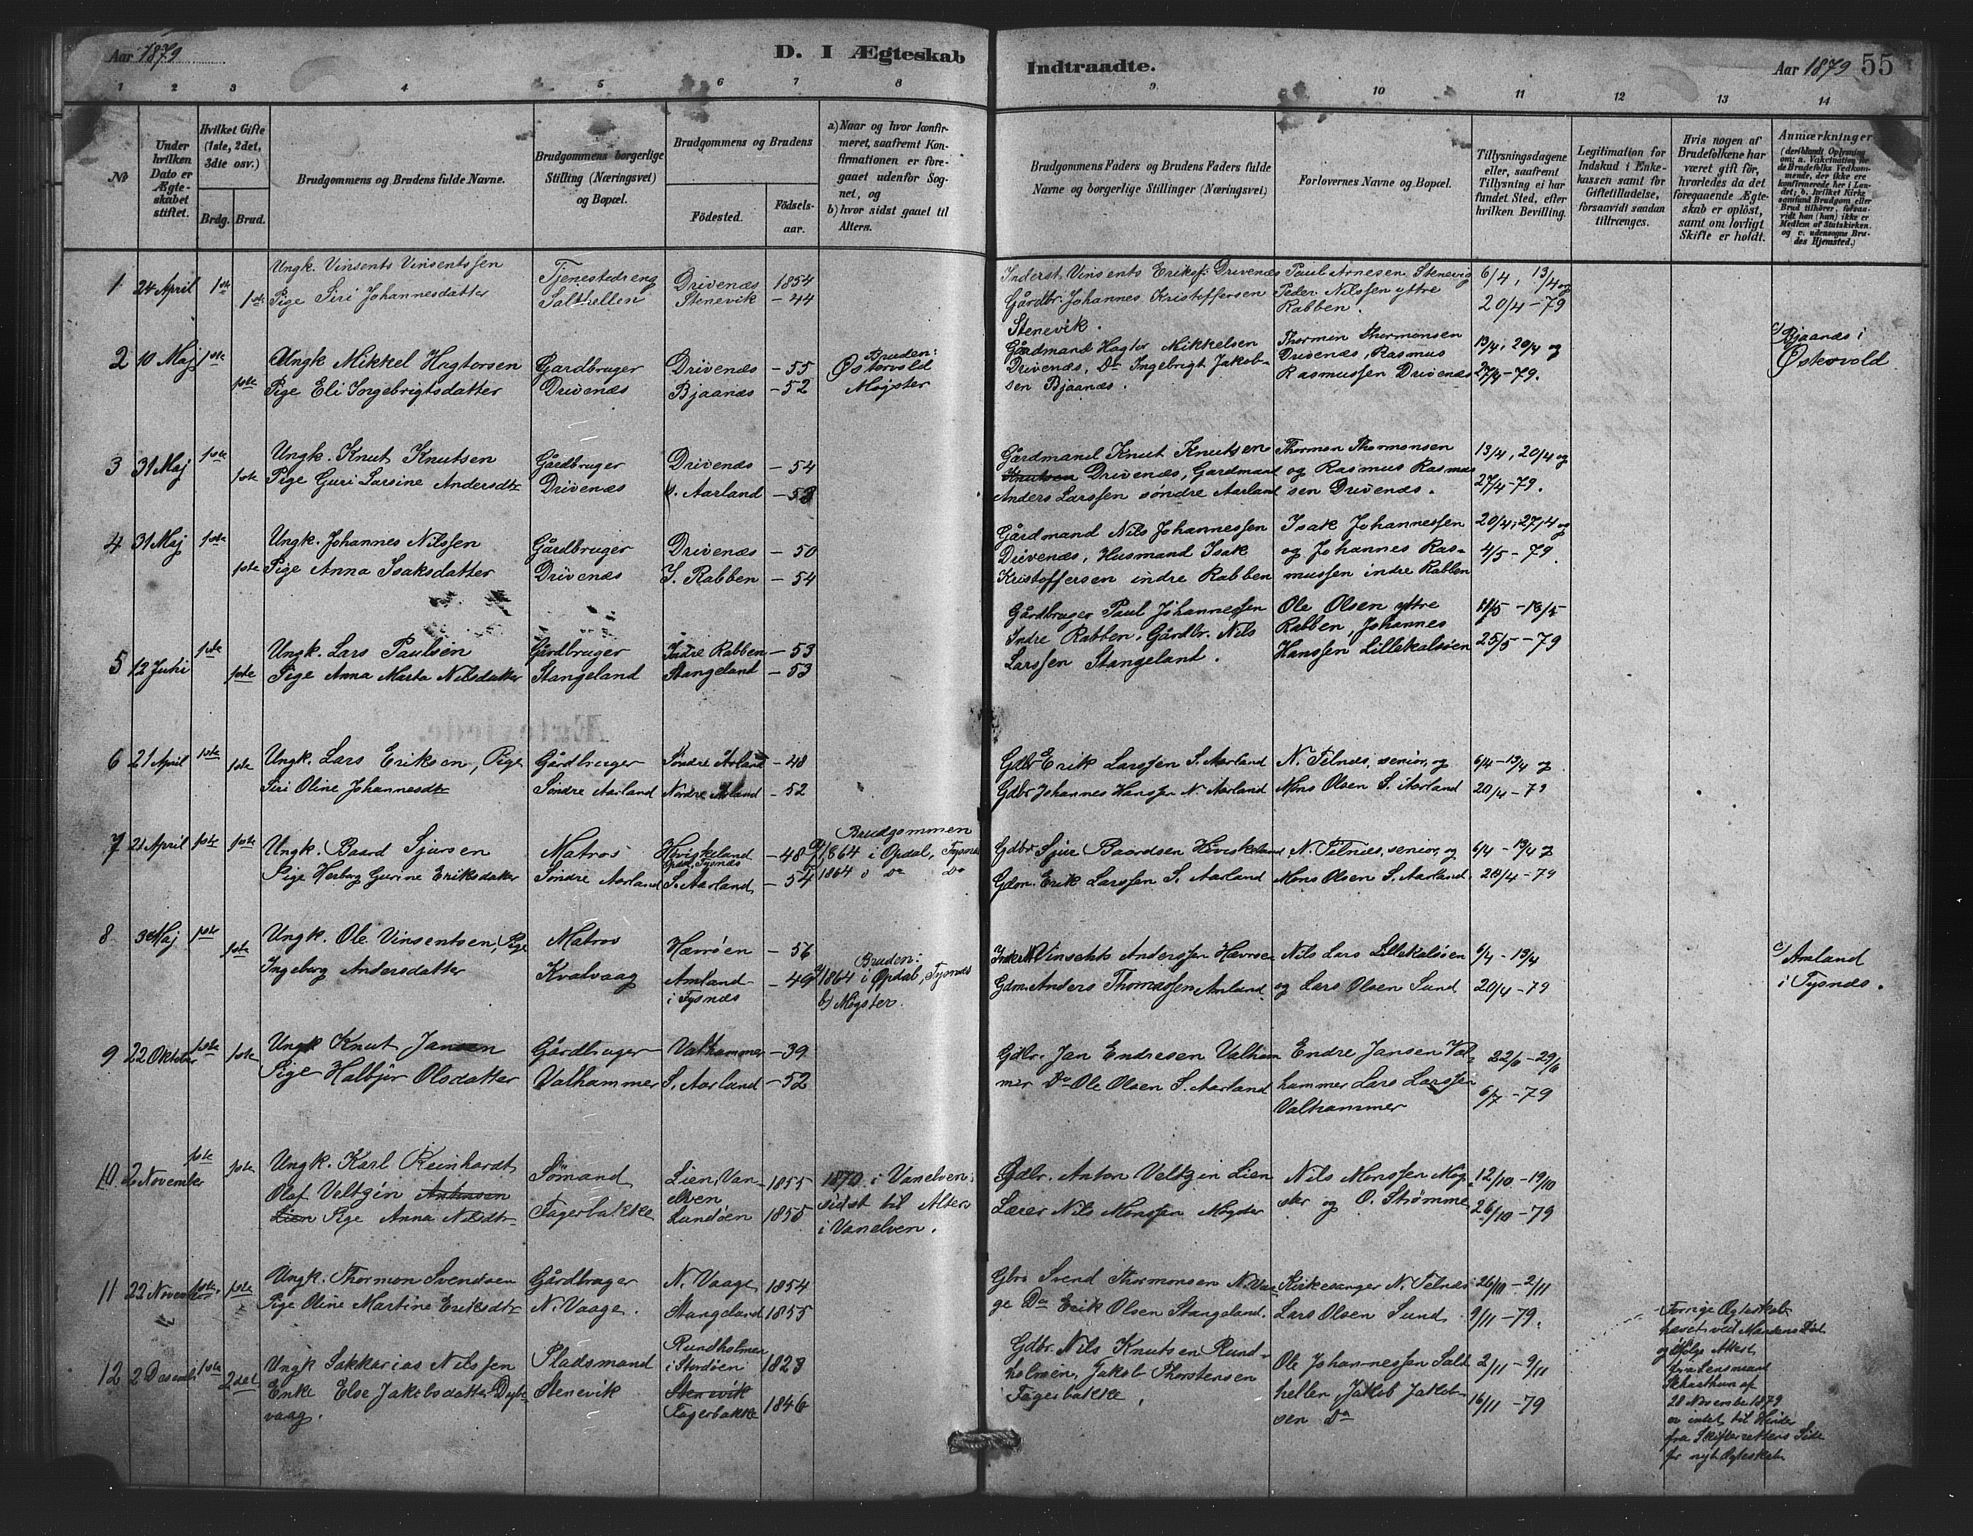 Aar 1879
D. I Ægteskab Indtraadte.
Aar 1879 55
1 2 3 4 5 6 7 8 9 10 11 12 13 14
No
Under hvilken Dato er Ægteskabet stiftet.
Hvilket Gifte (1ste, 2det, 3die osv.)
Brdg. Brud.
Brudgommens og Brudens fulde Navne.
Brudgommens borgerlige Stilling (Næringsvei) og Bopæl.
Brudgommens og Brudens
Fødested.
Fødselsaar.
a) Naar og hvor konfirmeret, saafremt Konfirmationen er foregaaet udenfor Sognet, og
b) hvor sidst gaaet til Alters.
Brudgommens Faders og Brudens Faders fulde Navne og borgerlige Stillinger (Næringsvei)
Forlovernes Navne og Bopæl.
Tillysningsdagene eller, saafremt Tillysning ei har fundet Sted, efter hvilken Bevilling.
Legitimation for Indskud i Enkekassen samt for Giftetilladelse, forsaavidt saadan tiltrænges.
Hvis nogen af Brudefolkene har været gift før, hvorledes da det foregaaende Ægteskab er opløst, samt om lovligt Skifte er holdt.
Anmærkninger
(deriblandt Oplysning om: a. Vakcination for de Brudefolks Vedkommende, der ikke ere konfirmerede her i Landet; b. hvilket Kirkesamfund Brudgom eller Brud tilhører, forsaavidt han (hun) ikke er Medlem af Statskirken. og c. udensogns Brudes Hjemsted.)
1 24 April 1ste Ungk. Vinsents Vinsentssen Tjenestedreng Drivenæs 1854 Inderst Vinsents Eriks. Drivenæs Paul Arnesen Stenevig 6/4, 13/4 og
1ste Pige Siri Johannesdatter Salthellen Stenevik - 44 Gårdbr. Johannes Kristoffersen Peder Nilssen yttre 20/4 - 79
Stenevik. Rabben.
2 10 Maj 1ste Ungk Mikkel Hagtorsen Gardbruger Drivenæs - 55 Bruden: Østervold Gårdmand Hagtor Mikkelsen Thormon Thormonsen 13/4, 20/4 og c) Bjaanæs i
1ste Pige Eli Ingebrigtsdatter Drivenæs Bjaanæs - 52 Møgster Drivenæs, Do Ingebrigt Jakobsen Bjaanæs. Drivenæs, Rasmus Rasmussen Drivenæs 27/4 - 79. Østervold
3 31 Maj 1ste Ungk. Knut Knutsen Gårdbruger Drivenæs - 54 Gårdmand Knut Knutsen Thormon Thormonsen 13/4, 20/4 og
1ste Pige Guri Larsine Andersdtr Drivenæs S. Aarland - 53 Knutsen Drivenæs, Gardmand og Rasmus Rasmus 27/4 - 79.
Anders Larssen søndre Aarland sen Drivenæs.
4 31 Maj 1ste Ungk. Johannes Nilssen Gårdbruger Drivenæs - 50 Gårdmand Nils Johannessen Isak Johannessen 20/4, 27/4 og
1ste Pige Anna Isaksdatter Drivenæs I. Rabben - 54 Drivenæs, Husmand Isak og Johannes Ras- 4/5 - 79.
Kristoffersen indre Rabben mussen indre Rabben
5 12 Juni 1ste Ungk. Lars Paulsen Gårdbruger Indre Rabben - 53 Gårdbruger Paul Johannessen Ole Olsen yttre 11/5 - 18/5
1ste Pige Anna Marta Nilsdatter Stangeland Stangeland - 53 Indre Rabben, Gårdbr. Nils Rabben Johannes 25/5 - 79
Larssen Stangeland. Hanssen Lillekalsøen
6 21 April 1ste 1ste Ungk. Lars Eriksen, Pige Gårdbruger Søndre Arland - 48 Gdbr Erik Larssen S. Aarland N. Telnæs, senior, og 6/4 - 13/4 og
Siri Oline Johannesdtr Søndre Aarland Nordre Arland - 52 Gdbr Johannes Hanssen N. Aarland Mons Olsen S. Aarland 20/4 - 79
7 21 April 1ste 1ste Ungk. Baard Sjursen Matros Hoviskeland Tysnæs - 48 Brudgommen a) 1864 i Opdal, Tysnæs Gdbr. Sjur Baardsen Hoviskeland N. Telnæs, senior, og 6/4 - 13/4 og
Pige Herborg Gurine Eriksdatter Søndre Aarland S. Aarland - 54 1864 i Do Do Gdm. Erik Larssen S. Aarland Mons Olsen S. Aarland 20/4 - 79
8 Maj 1ste Ungk. Ole Vinsentsen, Pige Matros Hævrøen - 56 Bruden: Vinsents Anderssen Hævrøen Nils Lars Lillekalsøen 6/4 - 13/4 c) Amland
1ste Ingeborg Andersdatter Kvalvaag Amland i Tysnæs - 49 a) 1864 i Opdal, Tysnæs b) Møgster. Gdm. Anders Thomassen Amland. og Lars Olsen Sund 20/4 - 79 i Tysnæs.
9 22 Oktober 1ste 1ste Ungk Knut Jansen Gårdbruger Valhammer - 39 Gdbr. Jan Endresen Valham Endre Jansen Val- 22/6 - 29/6
Pige Halbjør Olsdatter Valhammer S. Aarland - 52 mer Do Ole Olsen S. Aarland hammer Lars Larssen 6/7 - 79
Valhammer
10 2 November 1ste 1ste Ungk. Karl Reinhardt Sømand Lien, Van- 1855 1870 i Vanelven; Gdbr. Anton Veltgin Lien Nils Monssen Møg 12/10 - 19/10
Olaf Veltgin Antonsen elven sidst til Alters
Lien Pige Anna Nilsdtr Fagerbakke Lundøen 1855 i Vanelven. Lærer Nils Monssen Møgster ster og O. Strømme 26/10 - 79
11 22 November 1ste 1ste Ungk. Thormon Svendsen Gårdbruger N. Vaage 1854 Gbr. Svend Thormonsen N. Vaa Kirkesanger N. Telnæs 26/10 - 2/11
Pige Oline Martine Eriksdtr N. Vaage. Stangeland 1855 ge Do Erik Olsen Stangeland. Lars Olsen Sund 9/11 - 79.
12 2 Desemb. 1ste Ungk Sakkarias Nilssen Pladsmand Rundholmen i Stordøen 1823 Gdbr. Nils Knutsen Rund- Ole Johannessen Salt 2/11 - 9/11
2det Enke Else Jakobsdatter Dyb- Stenevik Stenevik 1846 holmen, Jakob Thorstensen heller, Jakob Jakob- 16/11 - 79
vaag. Fagerbakke Fagerbakke. sen Do
Forrige Ægteskab hævet ved Mandens Død og ifølge Attest
28 November 1879 er intet til Hinder fra Skifterettens Side for nyt Ægteskab